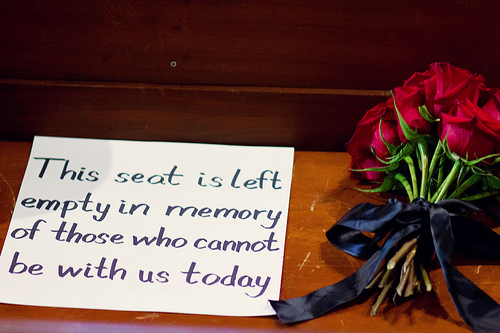 This seat is left
empty in memory
of those who cannot
be with us today